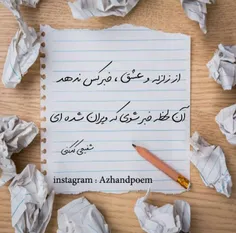 از زلزله و عشق ، خبر کس ندهد
آن لحظه خبر شوی که ویران شده ای
شفیعی کدکنی
instagram : Azhandpoem